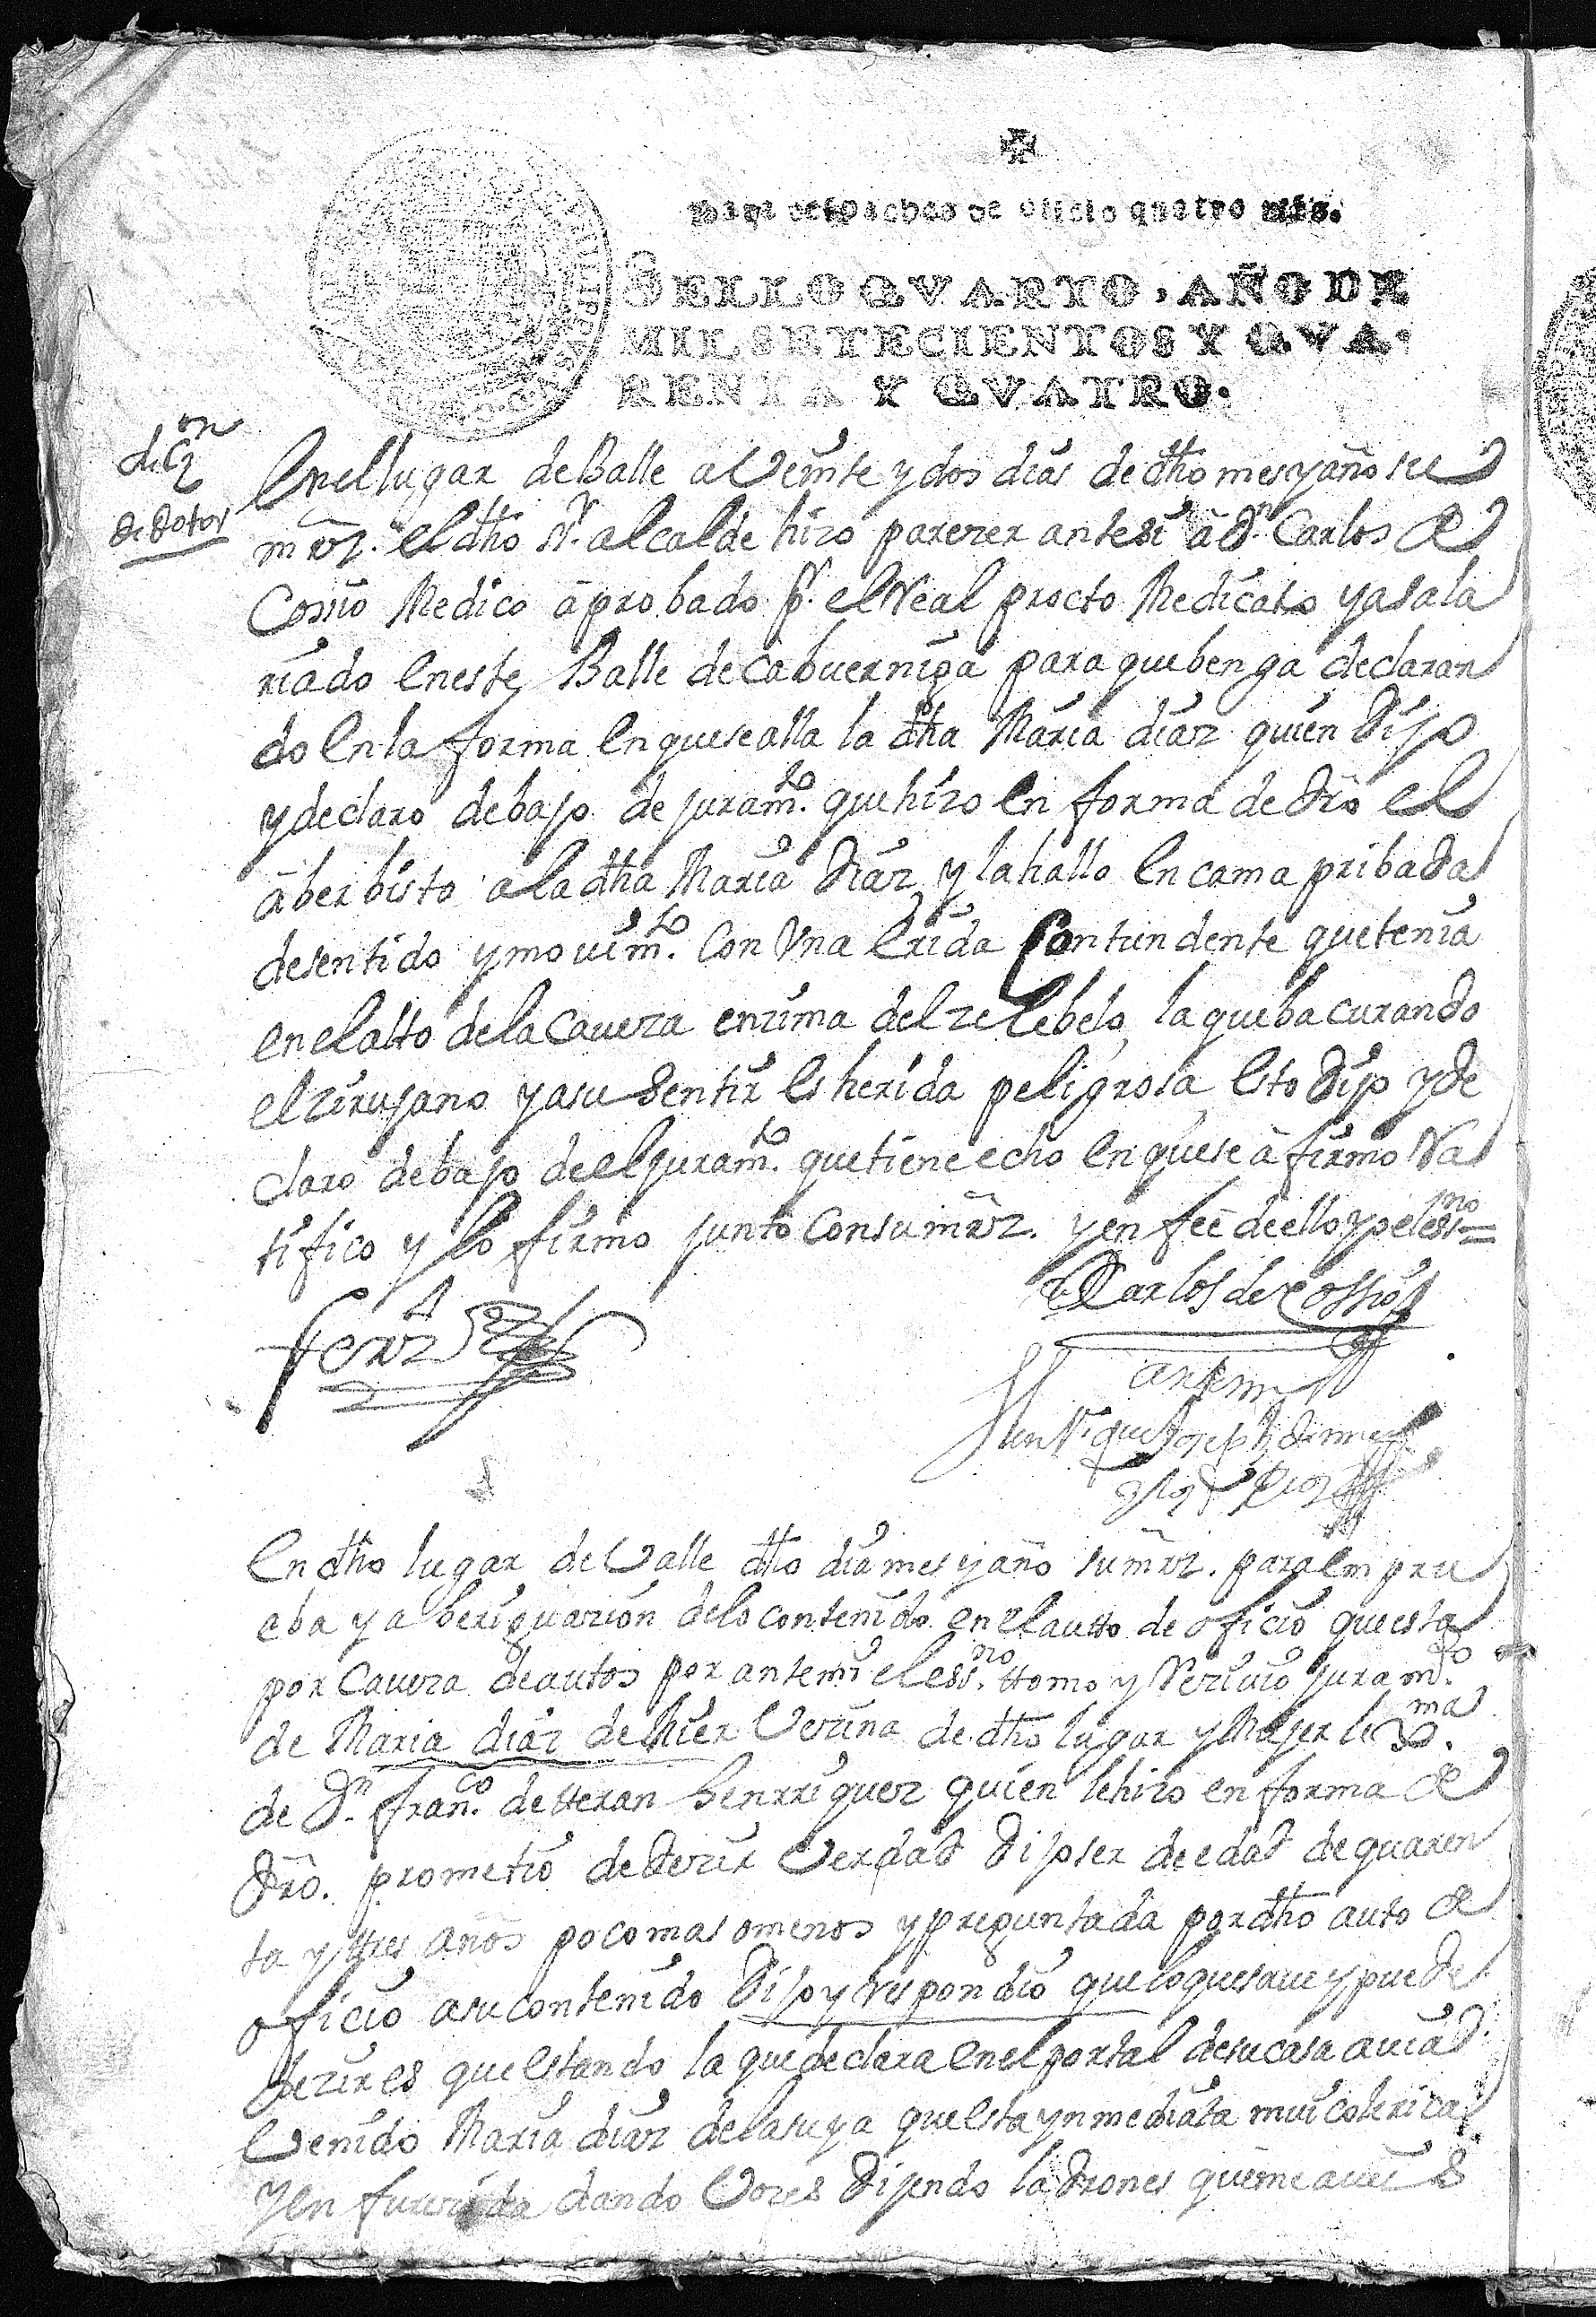 Para despachos de oficio quatro mrs.
SELLO QVARTO, AÑO DE
MIL SETECIENTOS Y QVA-
RENTA Y QVATRO.
de Dotor
En el lugar de Balle a Veinte y dos dias de dho mes y año su
mrz. el dho Sr. alcalde hizo parezer ante si â Dn. Carlos de
Cosio Medico âprobado pr. el Real procto Medicato y asala
riado en este Balle de cabuerniga para que benga declaran
do en la forma en que se alla la dha Maria diaz quien Dijo
y declaro debajo de juramto. que hizo en forma de dro el
âber bisto a la dha Maria Diaz y la hallo en cama pribada
de sentido y movimto. Con Vna erida Contundente que tenia
en el alto de la Caveza enzima del zelebelo la que ba curando
el zirujano y a su sentir es herida peligrosa esto Dijo y de
claro debajo de el juramto. que tiene echo en que se âfirmo Ra
tifico y lo firmo junto Con su mrz. y en feê de ello yo el essno =
D Carlos de Cossio
Ferz
ante mi
Henrique Joseph
En dho lugar de Valle dho dia mes y año su mrz. para en prue
eba y aberiguazion de lo contenido en el autto de oficio que esta
por Caveza de autos por ante mi el essno. ttomo y Rezivio juramto.
de Maria diaz de Mier Vezina de dho lugar y Mujer lexma.
de Dn. Franco. de tteran henrriquez quien le hizo en forma de
dro. prometio de dezir Verdad Dijo ser de edad de quaren
ta y ttres años poco mas o menos y preguntada por dho auto de
oficio a su contenido Dijo y respondio que lo que save y puede
dezir es que estando la que declara en el portal de su casa avia
Venido Maria diaz de la suya que esta ynmediata mui colerica
y enfurezida dando Vozes Dijendo ladrones que me aveis